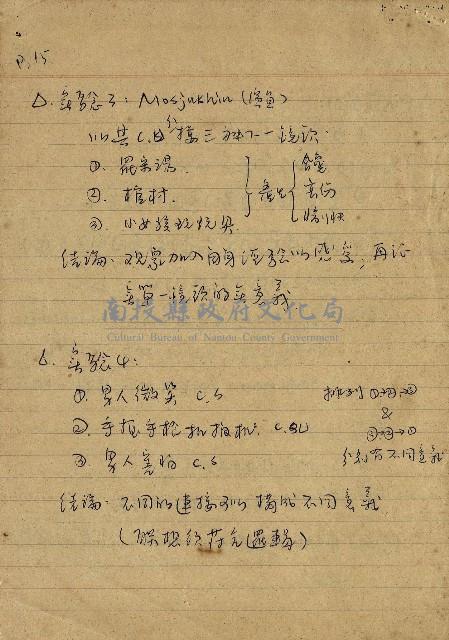 P.15
△. 實驗3: Mosjukhin (演員)
以其 C.U 分接三種下一鏡頭.
①. 羅宋湯.
②. 棺材.
③. 小女孩玩玩具
看出
貪婪
哀傷
愉快
結論: 觀象加入自身經驗以感受, 再証
單一鏡頭的無意義
南投縣政府文化局
Cultural Bureau of Nantou County Government
△ 實驗4:
①. 男人微笑 C.S
②. 手握手槍扣板机
③. 男人害怕 C.S
排列 ①→②→③
&
③→②→①
分別有不同意義
結論: 不同的連接可以構成不同意義
(聯想須符合邏輯)